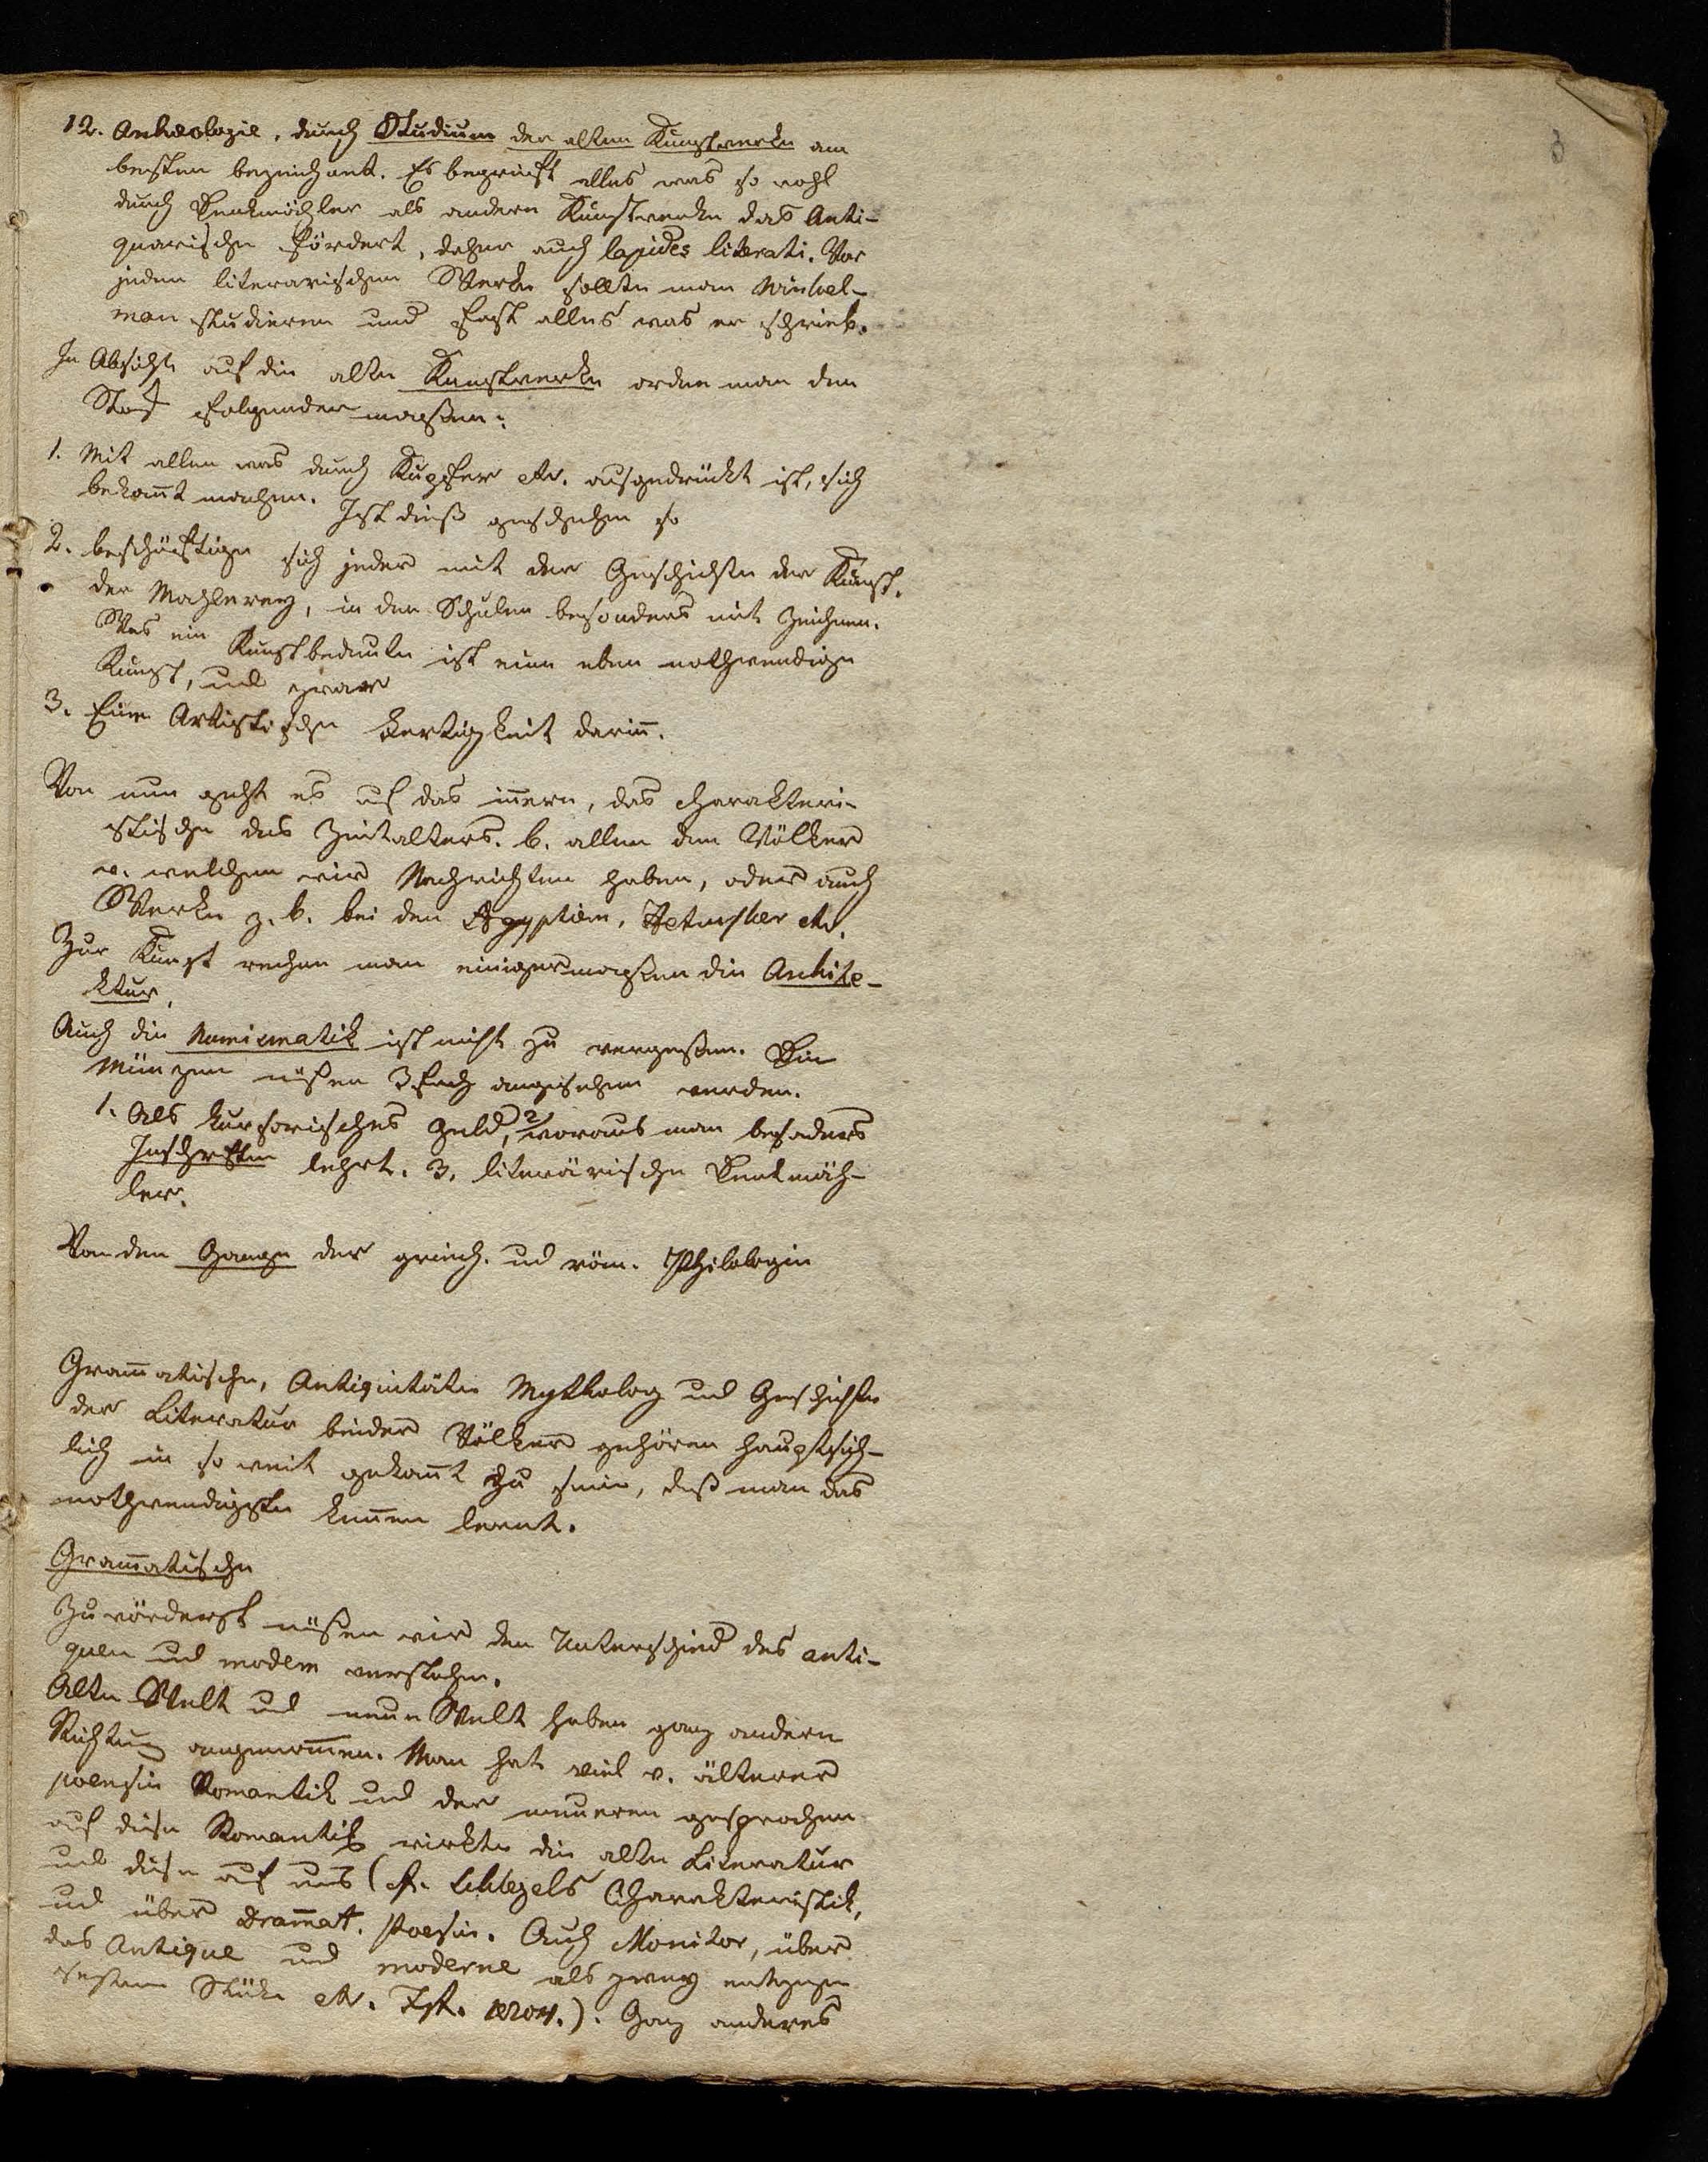 3
12. Archeologie, durch Studium der alten Kunstwerke am
besten bezeichnet. Es begreift alles was so wohl
durch Denkmähler als andere Kunstwerke das Anti-
quarische fördert, daher auch lapides literati. Vor
jedem literarischen Werke sollte man Winkel-
man studieren und fast alles was er schrieb.
In Absicht auf die alten Kunstwerke ordne man den
Stof folgender maßen:
1. Mit allem was durch Kupfer etc. ausgedrückt ist, sich
bekañt machen. Ist dieß geschehen so
2. beschäftige sich jeder mit der Geschichte der Kunst,
der Mahlerey, in den Schulen besonders mit Zeichnen.
Was ein Kunst bedeute ist eine eben nothwendige
Kunst, und zwar
3. Eine Artistische Fertigkeit dariñ.
Von nun geht es auf das iñere, das charakteri-
stische des Zeitalters. b. allen den Völker
v. welchen wir Nachrichten haben, oder auch
Werke z. b. bei den Ägyptiern, Hetrusker etc.
Zur Kunst rechne man einigermaßen die Archite-
ktur,
Auch die Numismatik ist nicht zu vergeßen. Die
Münzen müßen 3fach angesehen werden.
1. Als kursorisches Geld, 2 woraus man besonders
Inschriften lehrt. 3. literärische Denkmäh-
ler.
Von dem Gange der griech. und röm. Philologie
Gram̄atische, Antiquitäten Mytholog und Geschichte
der Literatur beider Völker gehören hauptsäch-
lich in so weit gekañt zu sein, daß man das
nothwendigste keñen lernt.
Gram̄atische
Zu vörderst müßen wir den Unterschied des anti-
quen und modern verstehen.
Alte Welt und neue Welt haben ganz andere
Richtung angenom̄en. Man hat viel v. älterer
poesie Romantik und der neueren gesprochen
auf diese Romantik wirkte die alte Literatur
und diese auf uns (cf. Schlegels Charakteristik,
und über Dram̄at. Poesie. Auch Monitor, über
das Antique und moderne als zwey entgegen
Stüke etc. 1804.). Ganz anderes